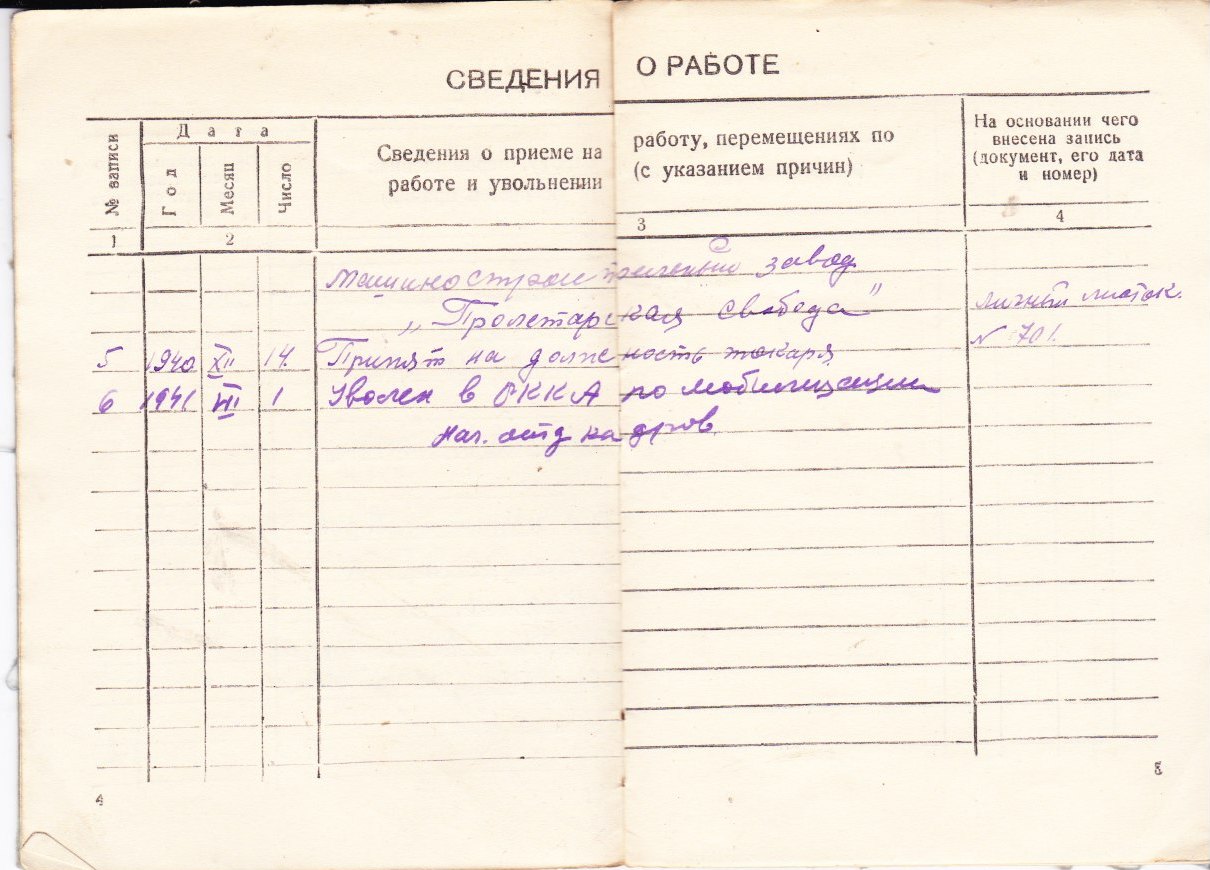 СВЕДЕНИЯ О РАБОТЕ
№ записи
Дата
Год
Месяц
Число
Сведения о приеме на работу, перемещениях по
работе и увольнении (с указанием причин)
На основании чего
внесена запись
(документ, его дата
и номер)
1 2 3 4
Машиностроительный завод
„Пролетарская Свобода"
Личный листок.
№ 701.
5 1940 XII 14. Принят на должность токаря
6 1941 VII 1 Уволен в РККА по мобилизации
Нач. отд кадров
4
5